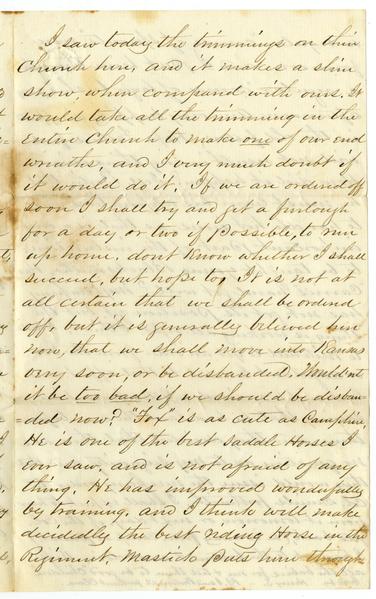 I saw today the trimmings on their
Church here, and it makes a slim
show, when compared with ours. It
would take all the trimming in the
Entire Church to make one of our end
wreaths, and I very much doubt if
it would do it. If we are ordered off
soon I shall try and get a furlough
for a day or two if possible, to run
up home. dont Know whether I shall
succeed, but hope to, It is not at
all certain that we shall be ordered
off, but it is generally believed here
now, that we shall move into Kansas
very soon, or be disbanded. Would nt
it be too bad, if we should be disban-
=ded now? "Fox" is as cute as Camphine,
He is one of the best saddle Horses I
Ever saw, and is not afraid of any
thing. He has improved wonderfully
by training, and I think will make
decidedly the best riding Horse in the
Regiment, Mastick puts him through